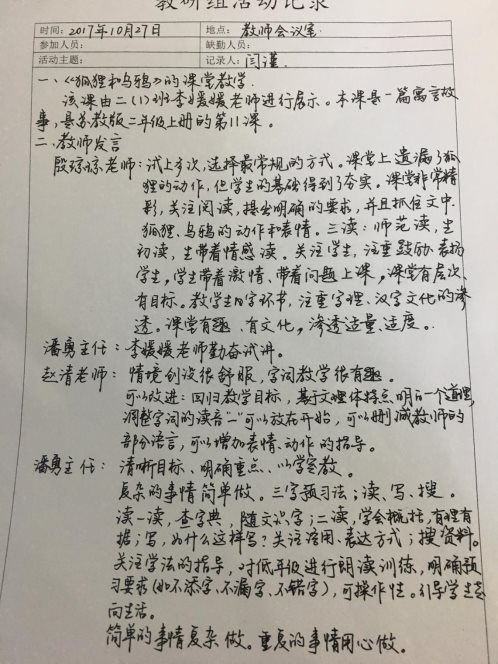 教研组活动记录
时间：2017年10月27日 地点：教师会议室
参加人员： 缺勤人员：
活动主题： 记录人：闫瑾
一、《狐狸和乌鸦》的课堂教学
该课由二（1）班李媛媛老师进行展示。本课是一篇寓言故
事，是苏教版二年级上册的第11课。
二、教师发言
殷琼琼老师：试上多次，选择最常规的方式。课堂上遗漏了狐
狸的动作，但学生的基础得到了夯实。课堂非常精
彩，关注阅读，提出明确的要求，并且抓住文中
狐狸、乌鸦的动作和表情。三读：师范读，生
初读，生带着情感读。关注学生，注重鼓励、表扬
学生，学生带着激情、带着问题上课，课堂有层次、
有目标。教学生田字环节，注重字理、汉字文化的渗
透。课堂有趣、有文化，渗透适量、适度。
潘勇主任：李媛媛老师勤奋试讲。
赵清老师：情境创设很舒服，字词教学很有趣。
可以改进：回归教学目标，基于文理体特点明白一个道理，
调整字词的读音“一”可以放在开始，可以删减教师的
部分语言，可以增加表情、动作的指导。
潘勇主任：清晰目标、明确重点、以学定教。
复杂的事情简单做。三字预习法；读、写、搜。
读一读，查字典，随文识字；二读，学会概括，有理有
据；写，为什么这样写？关注活用、表达方式；搜资料。
关注学法的指导，对低年级进行朗读训练，明确预
习要求（如不添字、不漏字、不错字），可操作性。引导学生
向生活。
简单的事情复杂做。重复的事情用心做。